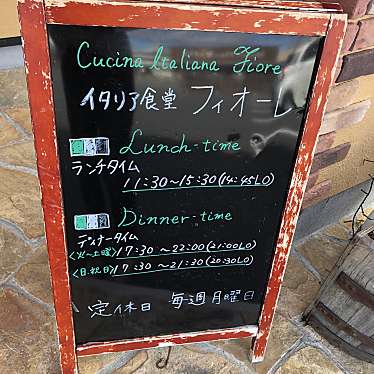 Cucina Italiana Fiore
イタリア食堂 フィオーレ
Lunch-time
ランチタイム
11:30~15:30(14:45LO)
Dinner-time
ディナータイム
<火~土曜>17:30~22:00(21:00LO)
<日.祝日>17:30~21:30(20:30LO)
定休日 毎週月曜日